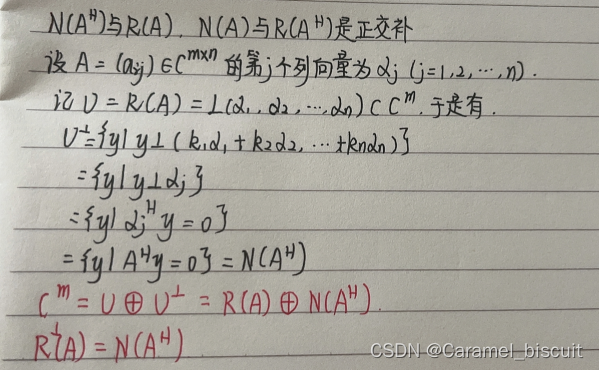 N(Aᴴ)与R(A)，N(A)与R(Aᴴ)是正交补
设 A = (aᵢⱼ) ∈ Cᵐˣⁿ 的第j个列向量为 αⱼ (j=1,2,…,n).
记 U = R(A) = L(α₁, α₂, …, αₙ) ⊂ Cᵐ. 于是有.
U^⊥={y| y⊥(k₁α₁ + k₂α₂, … + kₙαₙ)}
={y| y⊥αⱼ}
={y| αⱼᴴ y = 0}
={y| Aᴴy = 0} = N(Aᴴ)
Cᵐ = U ⊕ U^⊥ = R(A) ⊕ N(Aᴴ).
R^⊥(A) = N(Aᴴ)
CSDN @Caramel_biscuit